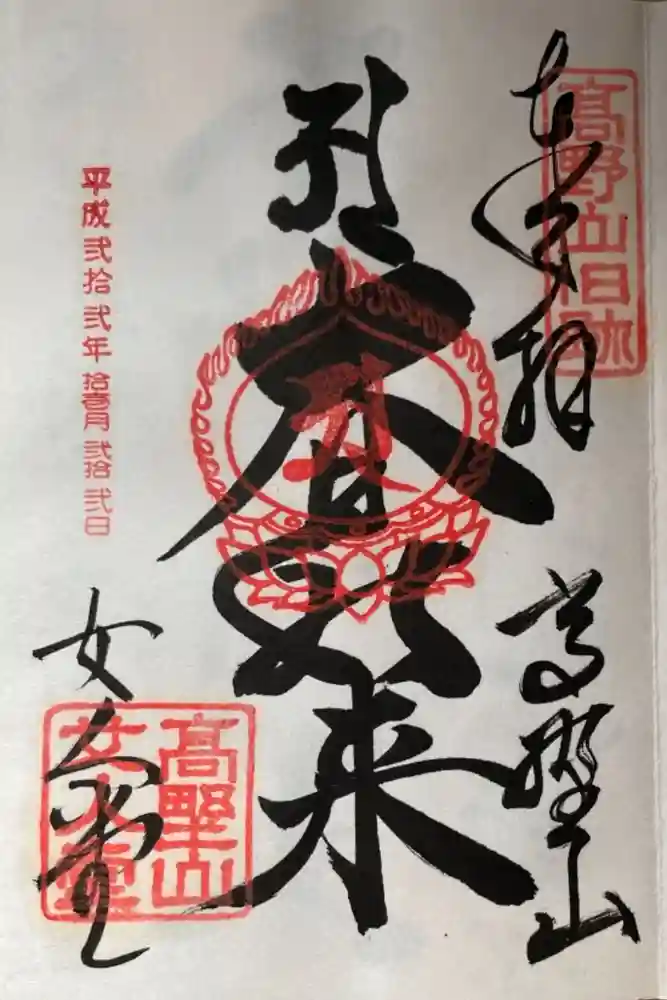 奉拝
髙野山旧跡
高野山
大日如来
平成弐拾弐年拾壹月弐拾弐日
女人堂
髙野山
女人堂